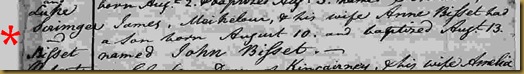 born Aug. 2. & baptized Aug. 3.
Luke
Scrimger James, Meikleur, & his wife Anne Bisset had
and a son born August 10. and baptized Augt. 13.
Bisset named John Bisset.—
Kincairney, & his wife Amelia